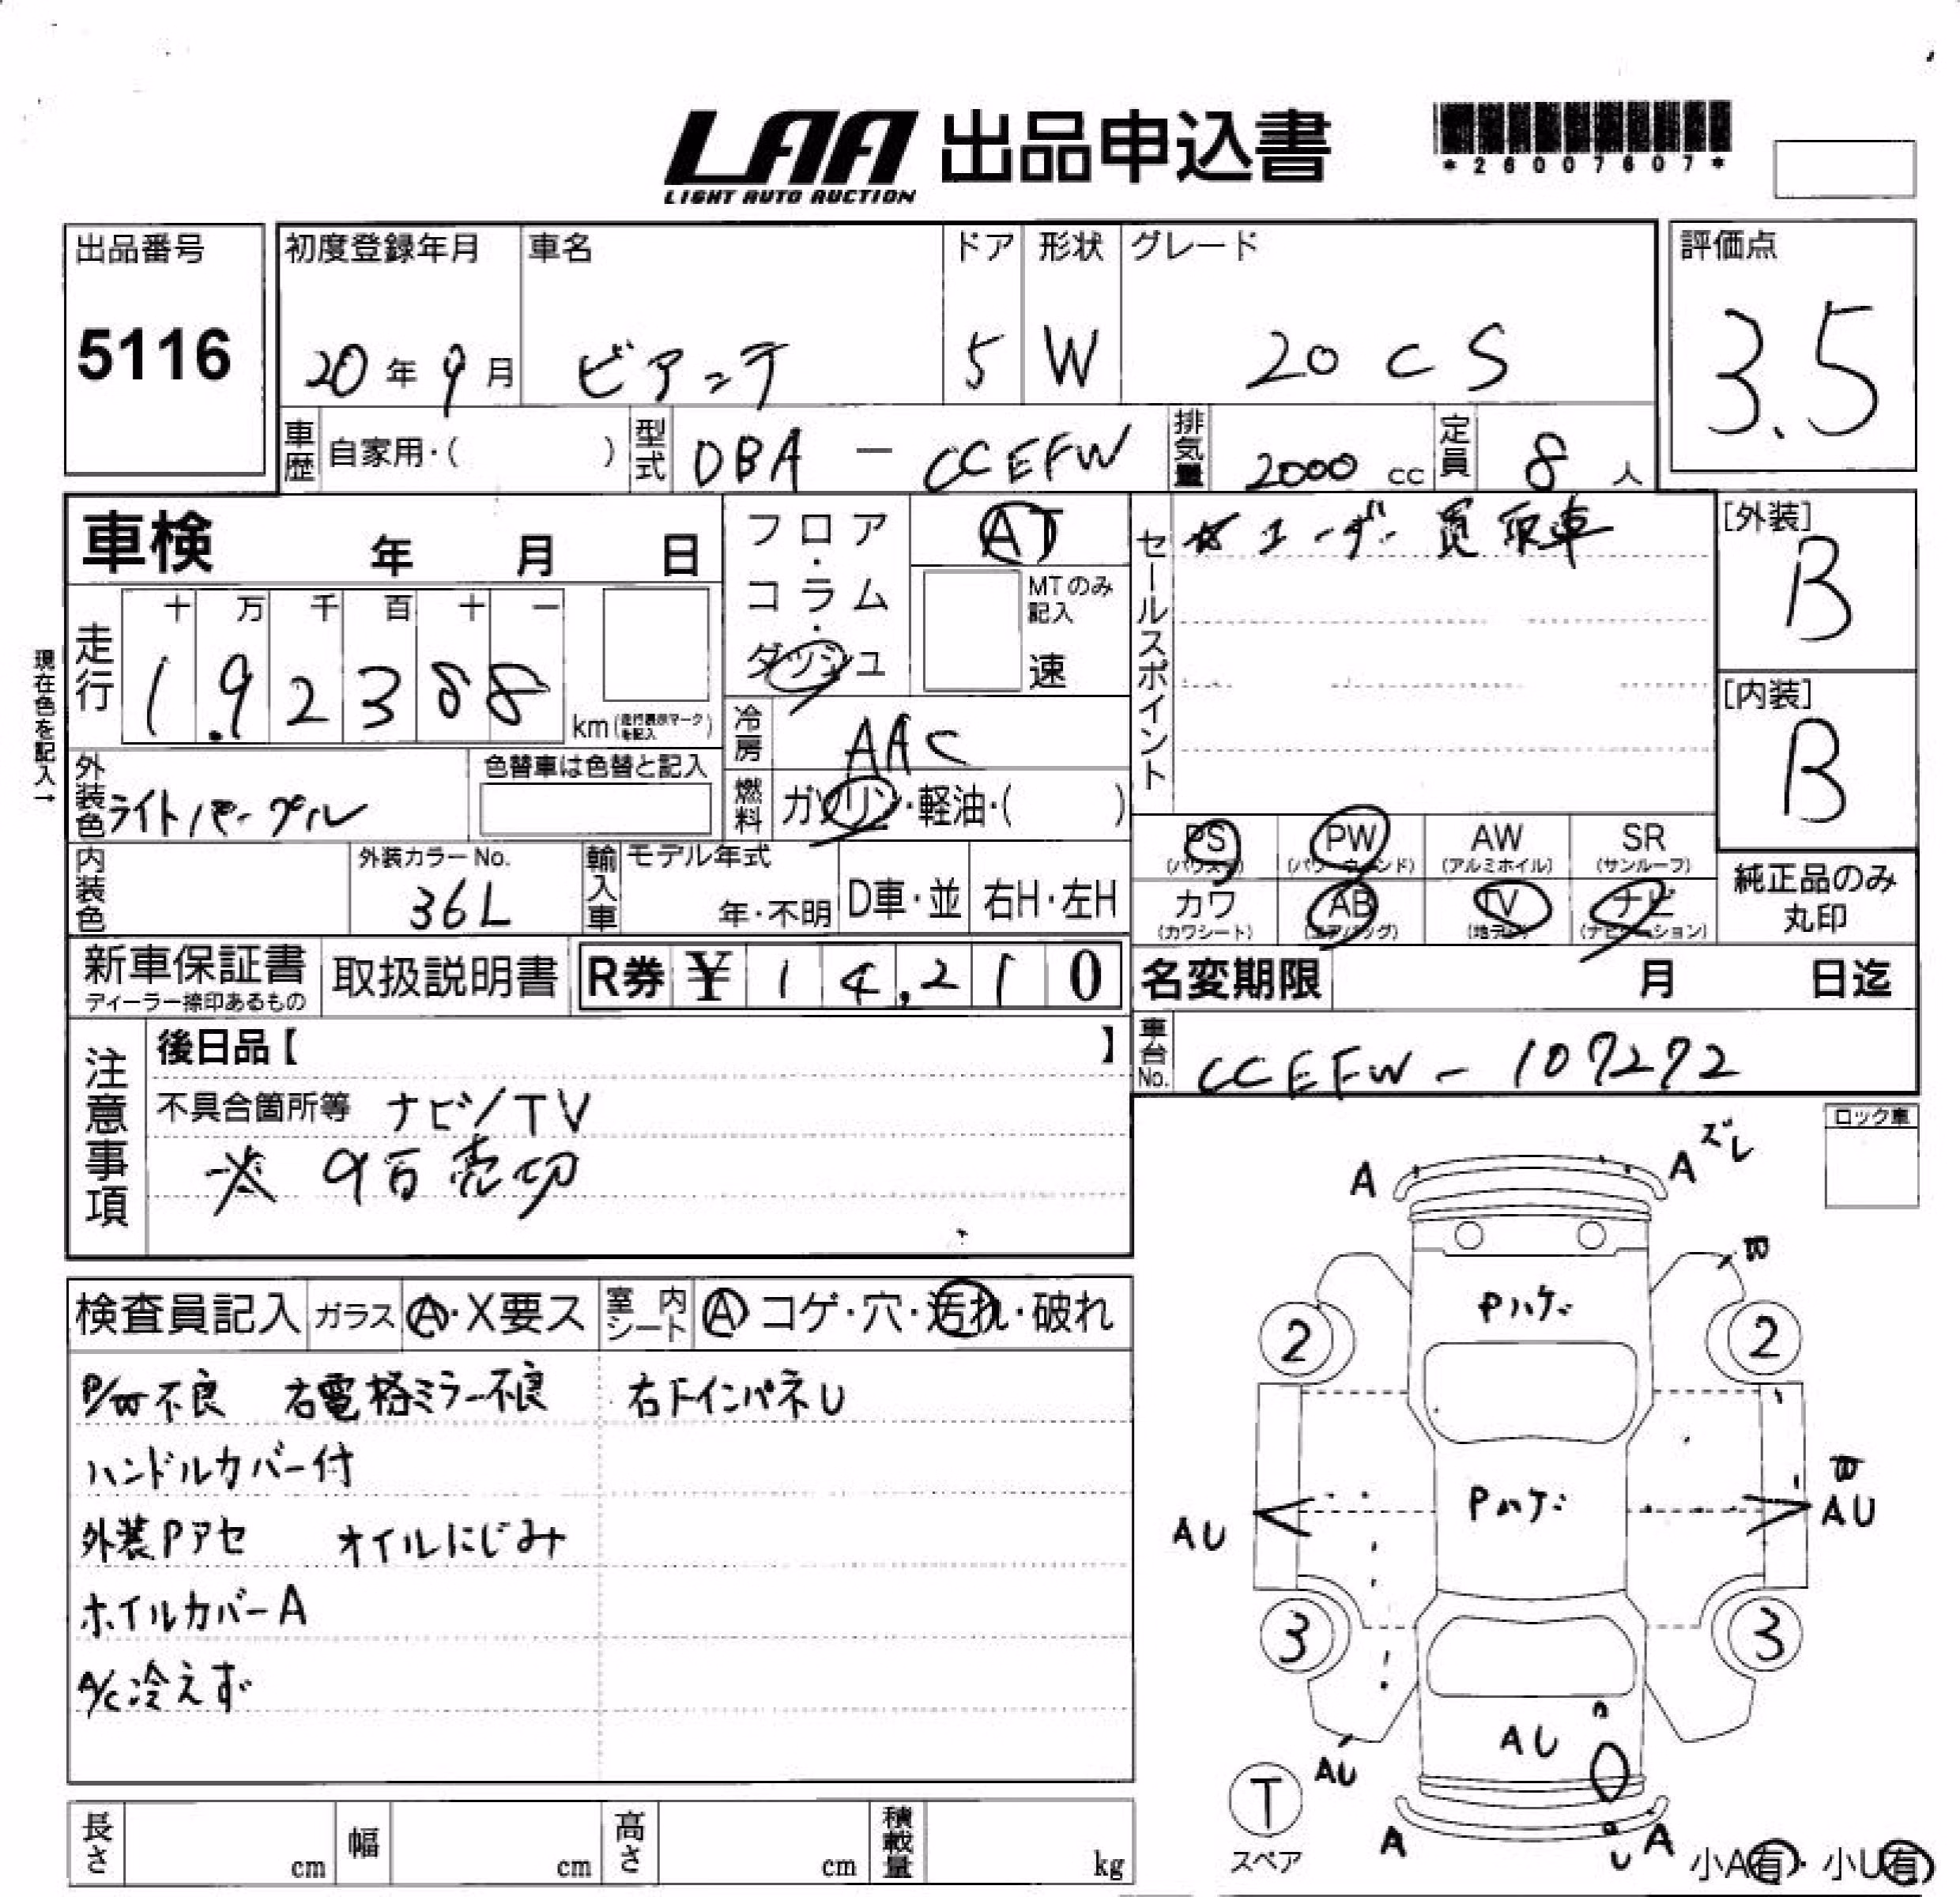 LAA 出品申込書
LIGHT AUTO AUCTION
*26007607*
出品番号 初度登録年月 車名 ドア 形状 グレード 評価点
5116 20年9月 ビアンテ 5 W 20CS 3.5
車歴 自家用・( ) 型式 DBA - CCEFW 排気量 2000 cc 定員 8 人
車検 年 月 日
フロア・コラム・ダッシュ
AT
MTのみ記入
速
セールスポイント ☆ユーザー買取車
[外装]
B
[内装]
B
現在色を記入→
走行 十 万 千 百 十 一
192388
km(走行表示マークを記入)
冷房 AAC
外装色 ライトパープル
色替車は色替と記入
燃料 ガソリン・軽油・( )
PS PW AW SR
(パワステ) (パワーウィンド) (アルミホイル) (サンルーフ)
カワ AB TV ナビ
(カワシート) (エアバッグ) (地デジ) (ナビゲーション)
純正品のみ
丸印
内装色
外装カラーNo.
36L
輸入車 モデル年式
年・不明 D車・並 右H・左H
新車保証書 取扱説明書 R券 ¥14,210
ディーラー捺印あるもの
名変期限 月 日迄
車台No. CCEFW - 107272
注意事項
後日品【 】
不具合箇所等 ナビ/TV
9万売切
ロック車
検査員記入 ガラス A・X要ス 室内シート A コゲ・穴・汚れ・破れ
P/W不良 右電格ミラー不良 右FインパネU
ハンドルカバー付
外装Pアセ オイルにじみ
ホイルカバーA
A/C冷えず
A A ズレ
W
Pハゲ
2 2
Pハゲ
W
AU AU
3 3
AU
AU
T
スペア
A U A
小A有・小U有
長さ cm 幅 cm 高さ cm 積載量 kg